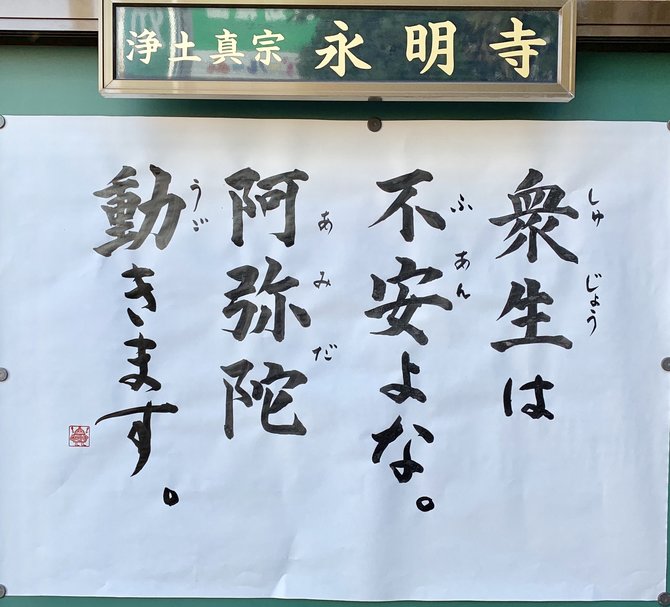 浄土真宗 永明寺
衆生は
しゅじょう
不安よな。
ふあん
阿弥陀
あみだ
動きます。
うご